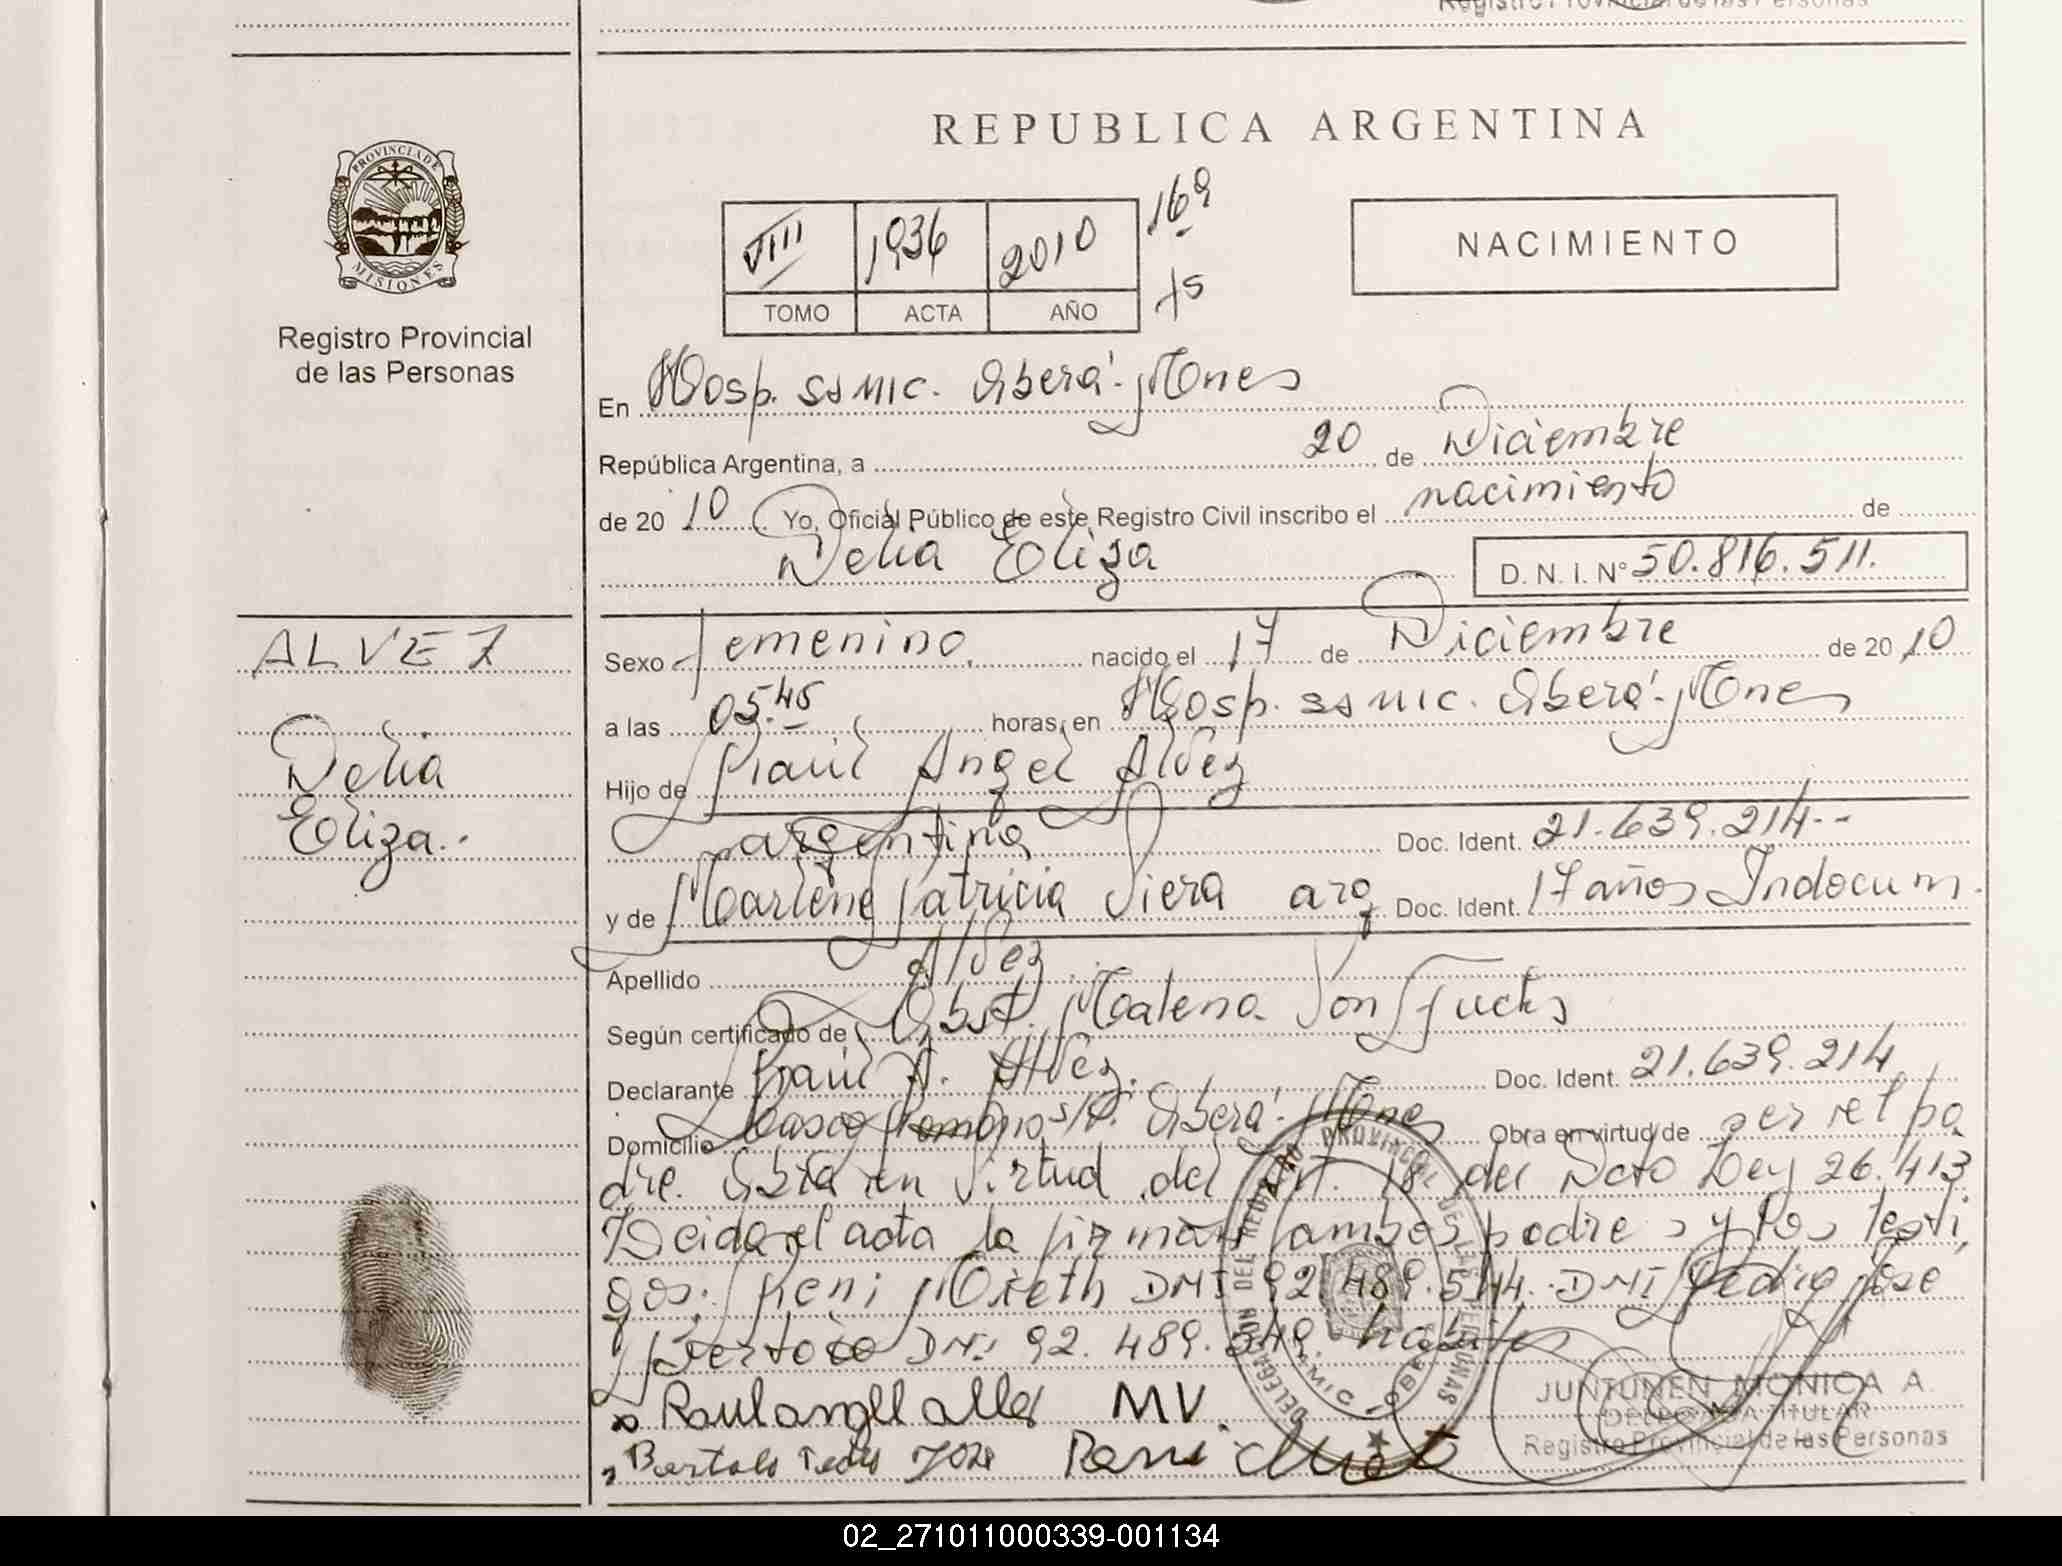 REPUBLICA ARGENTINA
PROVINCIA DE
MISIONES
Registro Provincial
de las Personas
VIII 1936 2010 169
TOMO ACTA AÑO
NACIMIENTO
En Hosp. SS MIC. Oberá - Mnes
República Argentina, a 20 de Diciembre
de 2010 Yo, Oficial Público de este Registro Civil inscribo el nacimiento de
Delia Eliza D. N. I. N° 50.816.511.
ALVEZ
Delia
Eliza..
Sexo femenino. nacido el 17 de Diciembre de 2010
a las 05.45 horas, en Hosp. SS MIC. Oberá - Mnes
Hijo de Raúl Angel Alvez
argentino Doc. Ident. 21.639.214--
y de Marlene Patricia Viera arg Doc. Ident. 17 años Indocum.
Apellido Alvez
Según certificado de Obst. Malena Von Fuchs
Declarante Raúl A. Alvez. Doc. Ident. 21.639.214
Domicilio Oberá - Mnes Obra en virtud de ser el pa
dre. en virtud del Art. 18 del Dcto Ley 26.413
Leida el acta la firman ambos padres y los testi
gos: Reni DNI 92.489.544. DNI Pedro Jose
DNI 92.489.549.
Raul angel MV.
Pedro Jose Reni
JUNTUNEN MONICA A.
DELEGADA TITULAR
Registro Provincial de las Personas
02_271011000339-001134